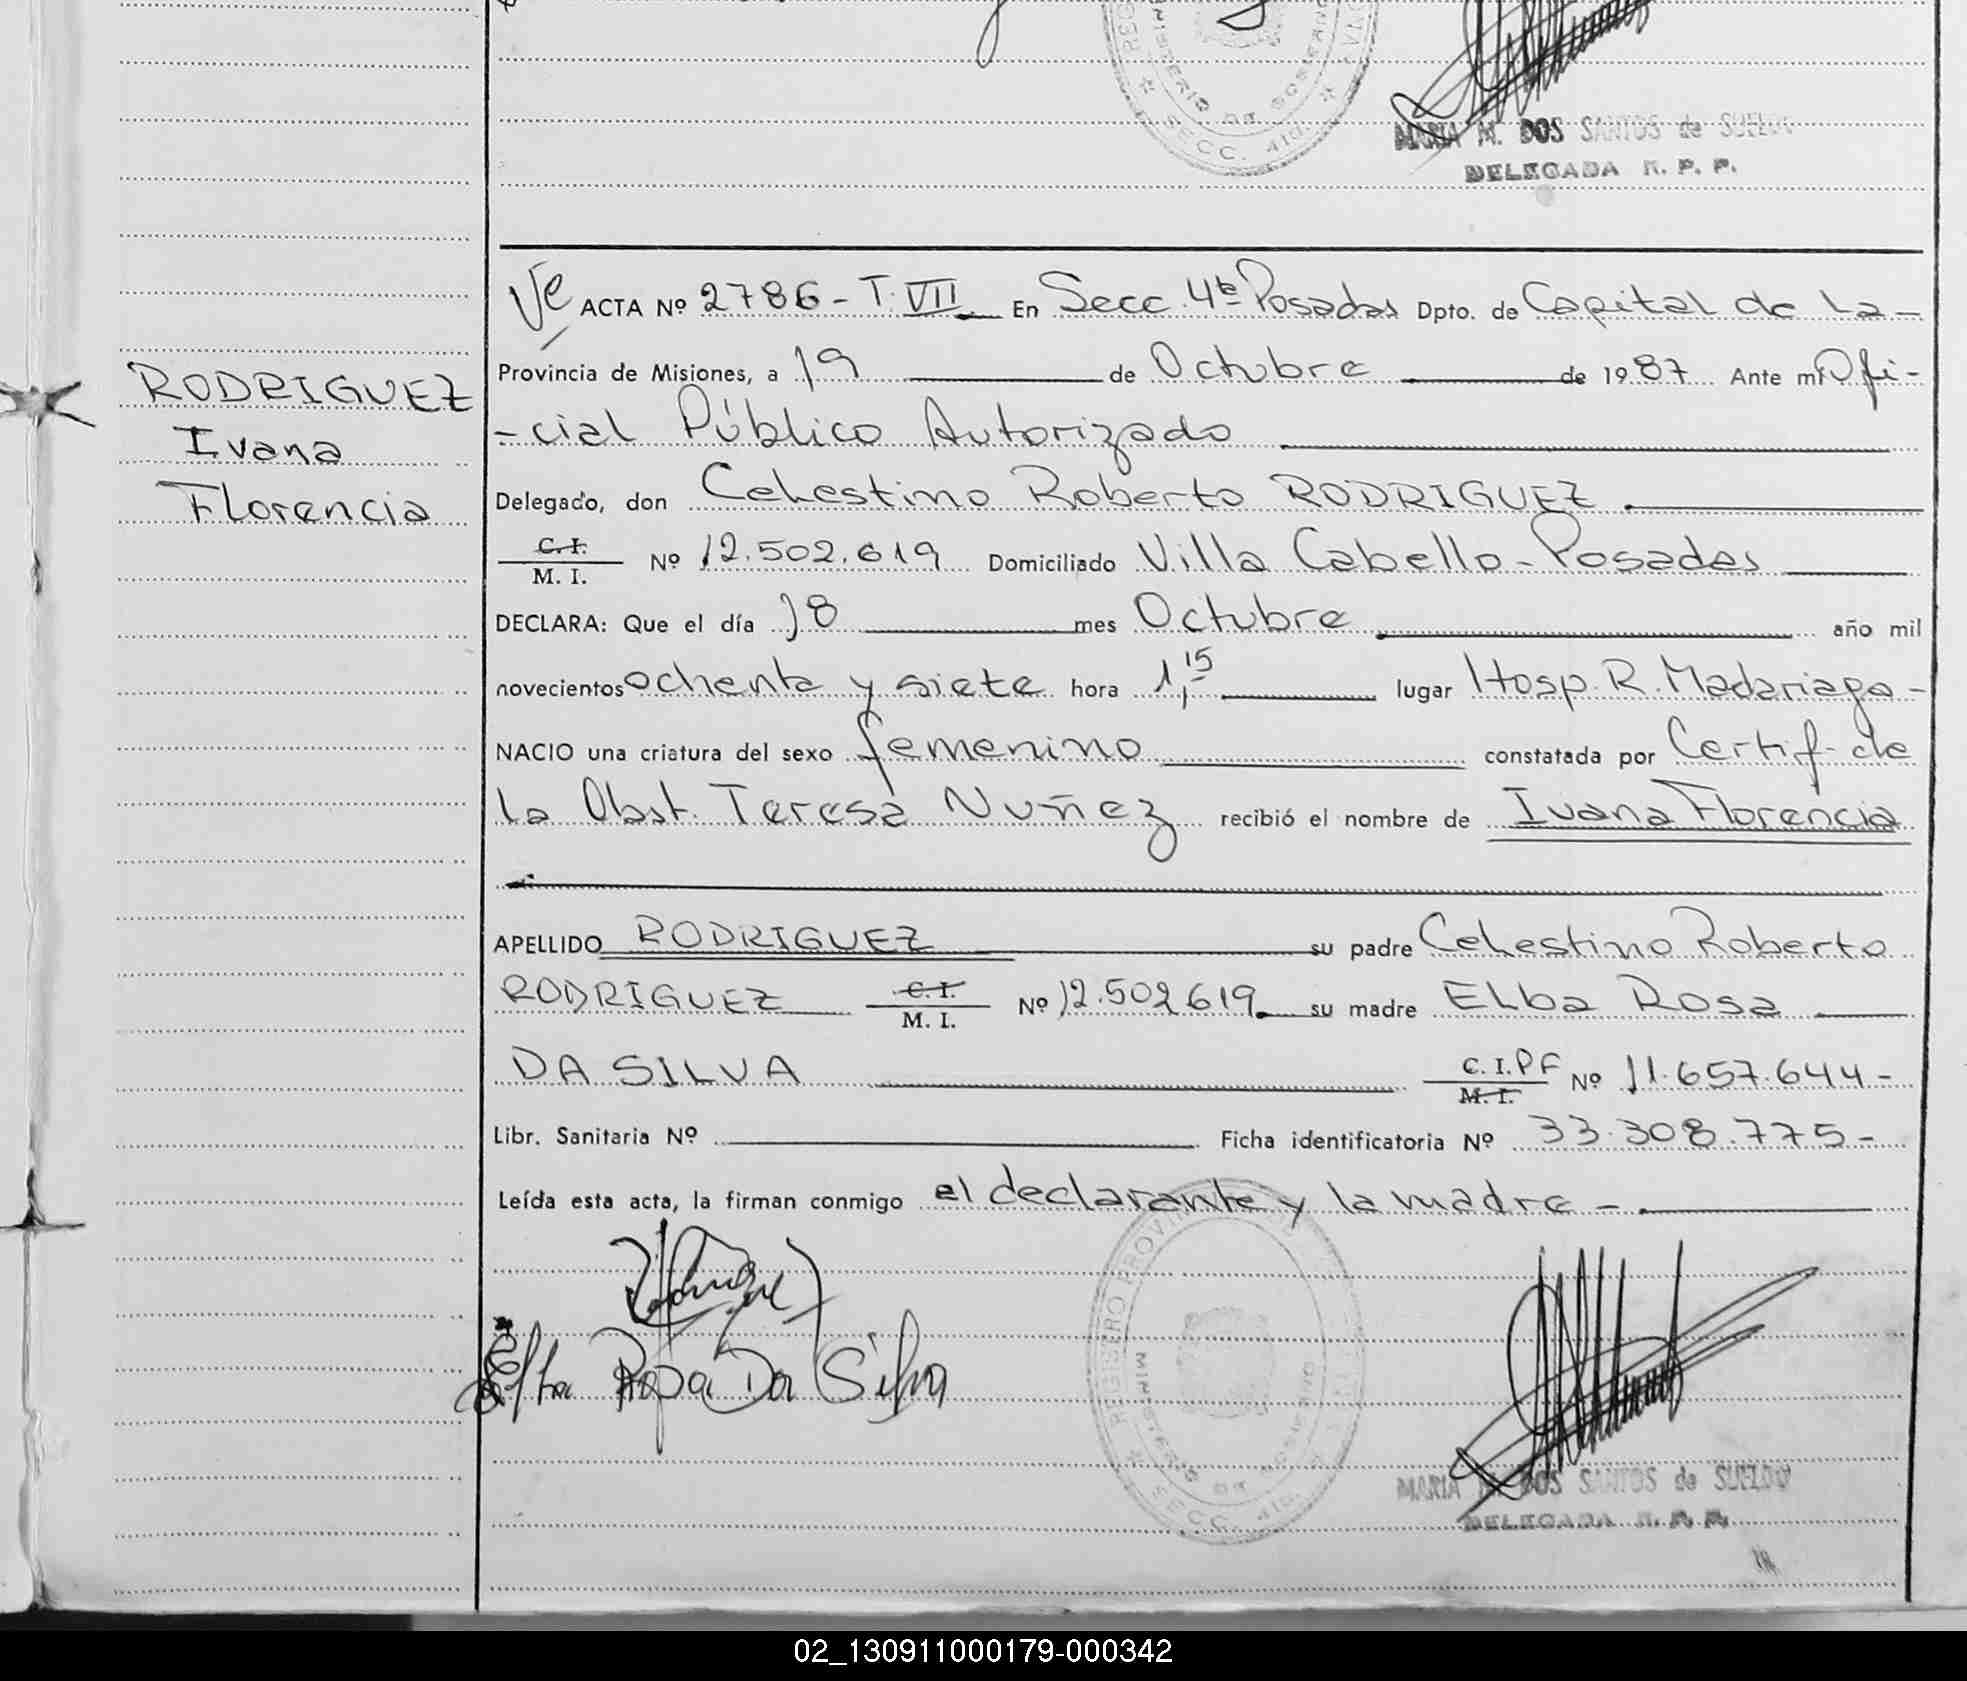 REG
MINISTERIO DE GOBIERNO
SECC. 4ta.
MARIA M. DOS SANTOS de SUELDO
DELEGADA R. P. P.
ACTA Nº 2786 - T. VII. En Secc. 4ta Posadas Dpto. de Capital de la -
Provincia de Misiones, a 19 de Octubre de 1987 Ante mí Ofi-
-cial Público Autorizado
RODRIGUEZ
Ivana
Florencia
Delegado, don Celestino Roberto RODRIGUEZ.
C. I.
M. I. Nº 12.502.619 Domiciliado Villa Cabello - Posadas
DECLARA: Que el día 18 mes Octubre año mil
novecientos ochenta y siete hora 1,15 lugar Hosp. R. Madariaga -
NACIO una criatura del sexo femenino constatada por Certif. de
la Obst. Teresa Nuñez recibió el nombre de Ivana Florencia
APELLIDO RODRIGUEZ su padre Celestino Roberto
RODRIGUEZ C. I. M. I. Nº 12.502619. su madre Elba Rosa
DA SILVA C. I. PF M. I. Nº 11.657.644 -
Libr. Sanitaria Nº Ficha identificatoria Nº 33.308.775 -
Leída esta acta, la firman conmigo el declarante y la madre -
Elba Rosa Da Silva
REGISTRO PROVIN
MINISTERIO DE GOBIERNO
SECC. 4ta.
MARIA M. DOS SANTOS de SUELDO
DELEGADA R. P. P.
02_130911000179-000342